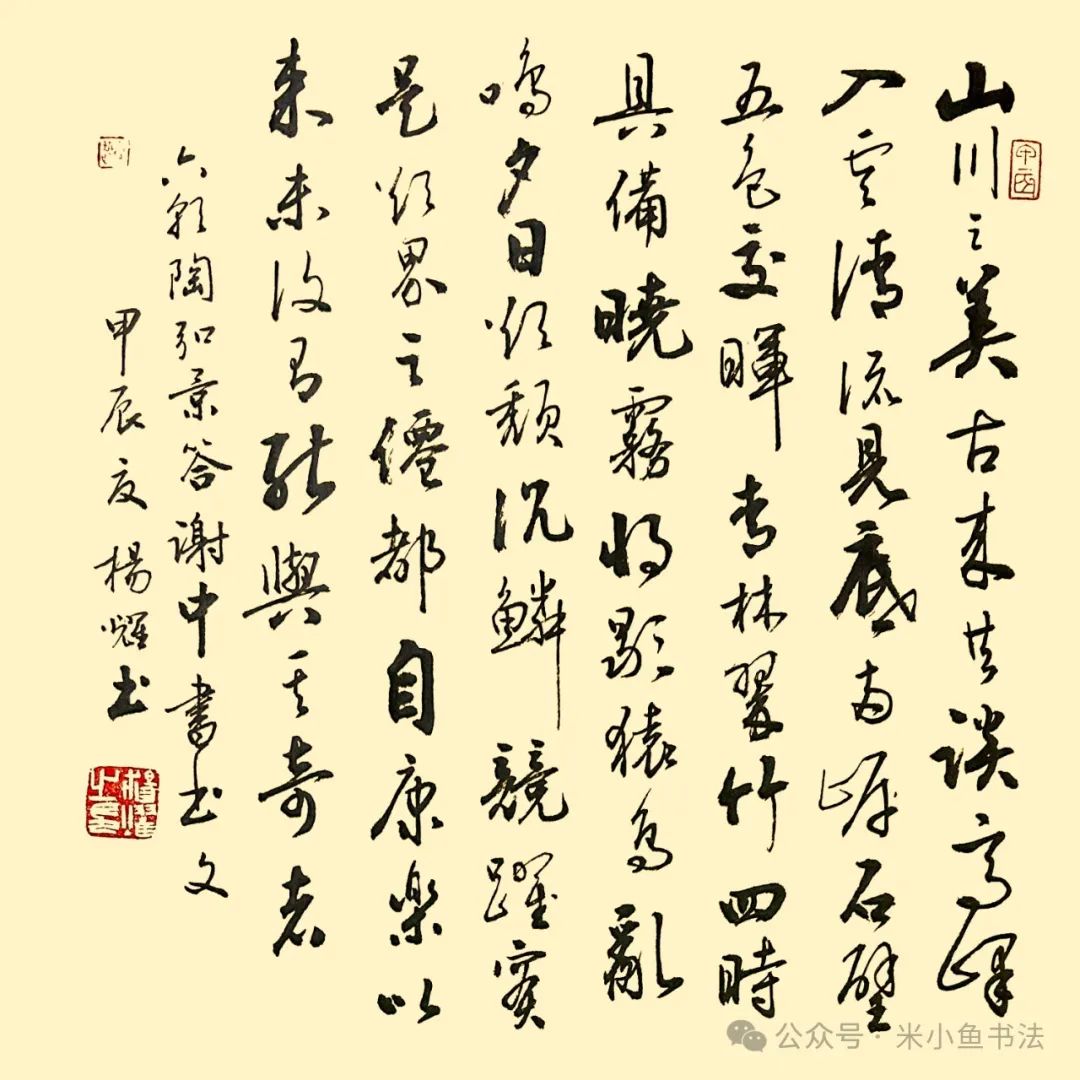 山川之美古来共談高峰
入雲清流見底两岸石壁
五色交暉青林翠竹四時
具備曉霧将歇猿鳥亂
鳴夕日欲頹沉鱗競躍實
是欲界之僊都自康樂以
来未復有能與其奇者
六朝陶弘景答謝中書书文
甲辰夏楊耀书
楊耀之印
公众号 · 米小鱼书法